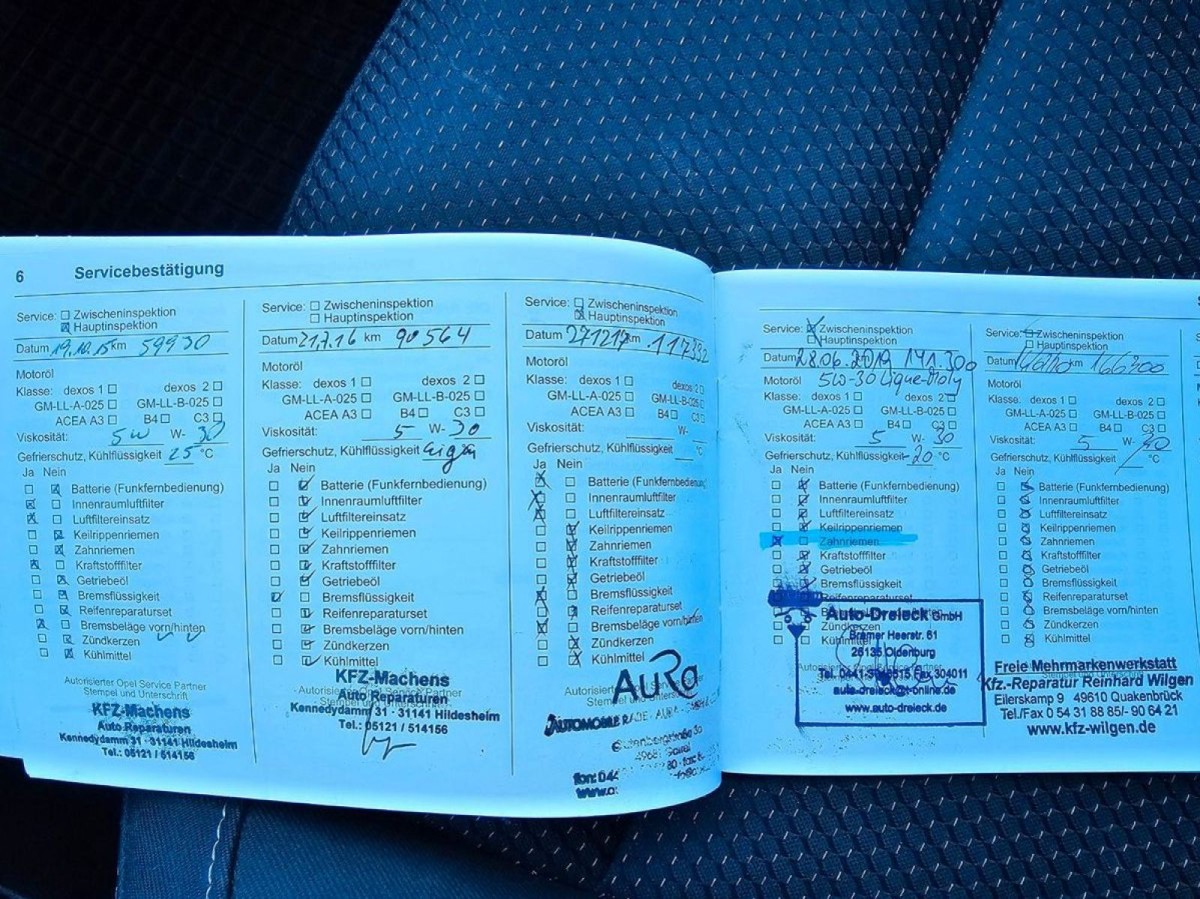 6 Servicebestätigung
Service: Zwischeninspektion
Hauptinspektion
Datum 19.10.15 km 59930
Motoröl
Klasse: dexos 1 dexos 2
GM-LL-A-025 GM-LL-B-025
ACEA A3 B4 C3
Viskosität: 5W W- 30
Gefrierschutz, Kühlflüssigkeit 25 °C
Ja Nein
Batterie (Funkfernbedienung)
Innenraumluftfilter
Luftfiltereinsatz
Keilrippenriemen
Zahnriemen
Kraftstofffilter
Getriebeöl
Bremsflüssigkeit
Reifenreparaturset
Bremsbeläge vorn/hinten
Zündkerzen
Kühlmittel
Autorisierter Opel Service Partner
Stempel und Unterschrift
KFZ-Machens
Auto Reparaturen
Kennedydamm 31 · 31141 Hildesheim
Tel.: 05121 / 514156
Service: Zwischeninspektion
Hauptinspektion
Datum 21.7.16 km 90564
Motoröl
Klasse: dexos 1 dexos 2
GM-LL-A-025 GM-LL-B-025
ACEA A3 B4 C3
Viskosität: 5 W- 30
Gefrierschutz, Kühlflüssigkeit
Ja Nein
Batterie (Funkfernbedienung)
Innenraumluftfilter
Luftfiltereinsatz
Keilrippenriemen
Zahnriemen
Kraftstofffilter
Getriebeöl
Bremsflüssigkeit
Reifenreparaturset
Bremsbeläge vorn/hinten
Zündkerzen
Kühlmittel
Autorisierter Opel Service Partner
KFZ-Machens
Auto Reparaturen
Kennedydamm 31 · 31141 Hildesheim
Tel.: 05121 / 514156
Service: Zwischeninspektion
Hauptinspektion
Datum 271217 km
Motoröl
Klasse: dexos 1 dexos 2
GM-LL-A-025 GM-LL-B-025
ACEA A3 B4 C3
Viskosität: W-
Gefrierschutz, Kühlflüssigkeit °C
Ja Nein
Batterie (Funkfernbedienung
Innenraumluftfilter
Luftfiltereinsatz
Keilrippenriemen
Zahnriemen
Kraftstofffilter
Getriebeöl
Bremsflüssigkeit
Reifenreparaturset
Bremsbeläge vorn/hinten
Zündkerzen
Kühlmittel
AURA
AUTOMOBILE
Service: Zwischeninspektion
Hauptinspektion
Datum 28.06.2019 141.300
Motoröl 5W-30 Lique-Moly
Klasse: dexos 1 dexos 2
GM-LL-A-025 GM-LL-B-025
ACEA A3 B4 C3
Viskosität: 5 W- 30
Gefrierschutz, Kühlflüssigkeit -20 °C
Ja Nein
Batterie (Funkfernbedienung)
Innenraumluftfilter
Luftfiltereinsatz
Keilrippenriemen
Zahnriemen
Kraftstofffilter
Getriebeöl
Bremsflüssigkeit
Reifenreparaturset
Zündkerzen
Kühlmittel
Auto-Dreieck GmbH
Bramer Heerstr. 61
26135 Oldenburg
Fax 304011
auto-dreieck@t-online.de
www.auto-dreieck.de
Service: Zwischeninspektion
Hauptinspektion
Datum km 166300
Motoröl
Klasse: dexos 1 dexos 2
GM-LL-A-025 GM-LL-B-025
ACEA A3 B4 C3
Viskosität: 5 W-
Gefrierschutz, Kühlflüssigkeit °C
Ja Nein
Batterie (Funkfernbedienung)
Innenraumluftfilter
Luftfiltereinsatz
Keilrippenriemen
Zahnriemen
Kraftstofffilter
Getriebeöl
Bremsflüssigkeit
Reifenreparaturset
Bremsbeläge vorn/hinten
Zündkerzen
Kühlmittel
Freie Mehrmarkenwerkstatt
Kfz.-Reparatur Reinhard Wilgen
Eilerskamp 9 49610 Quakenbrück
Tel./Fax 0 54 31 88 85/- 90 64 21
www.kfz-wilgen.de